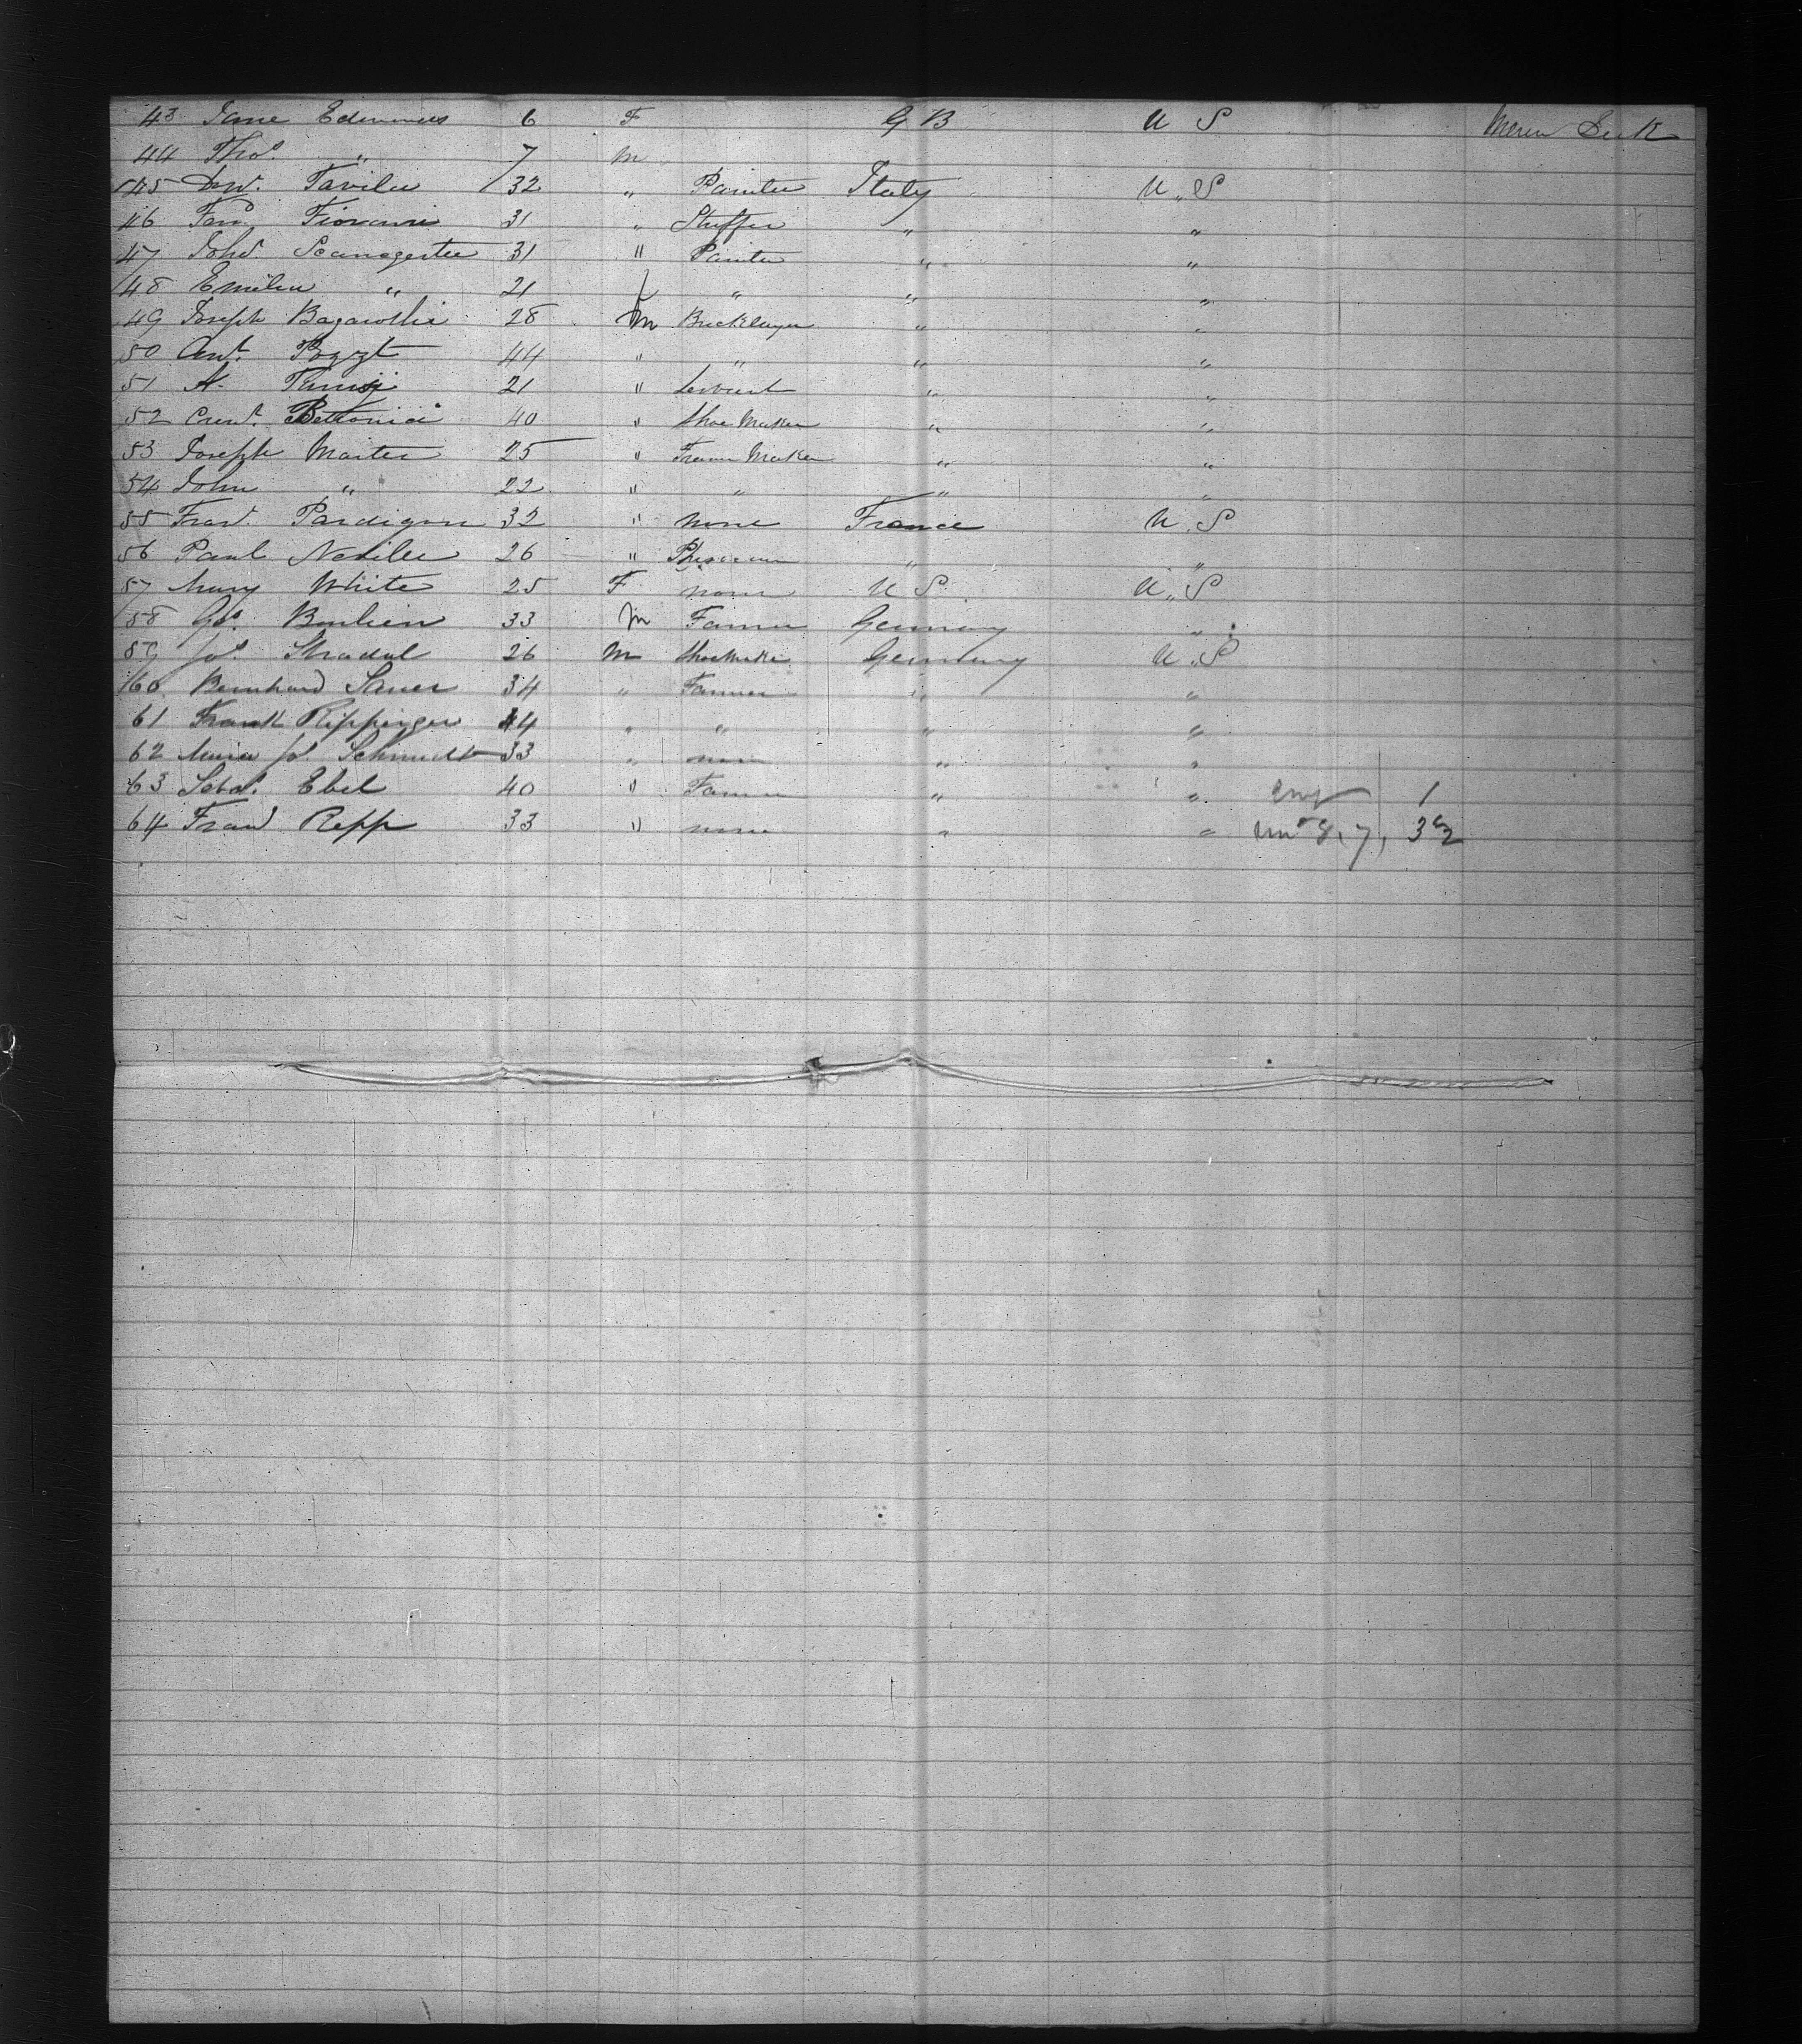 43 Jane Edmunds 6 F G B U S
44 Thos. " 7 m
45 Dow. Tavilu 32 " Painter Italy U " S
46 31 " Stuffer " "
47 Johd. Scanagertee 31 " Painter " "
48 Emilia " 21 f " " "
49 Joseph 28 m Bricklayer " "
50 Ant. Pozzt 44 " " " "
51 A. 21 " Servant " "
52 Bettonici 40 " Shoe Maker " "
53 Joseph Martes 25 " Frame Maker " "
54 John " 22 " " " "
55 Frard. Pardigon 32 " none France U. S
56 Paul Nevilee 26 " " "
57 Mary White 25 F none U S U " S
58 Gd. Bonlien 33 m Farmer Germany "
59 Jos. Stradal 26 m Shoemaker Germany U. S
60 Bernhard Sauer 34 " Farmer " "
61 Frank Rippinger 44 " " " "
62 Maria Jos. Schmidt 33 " none " "
63 Sebas. Ebel 40 " Farmer " " 1
64 Repp 33 " none " " 8, 7, 32